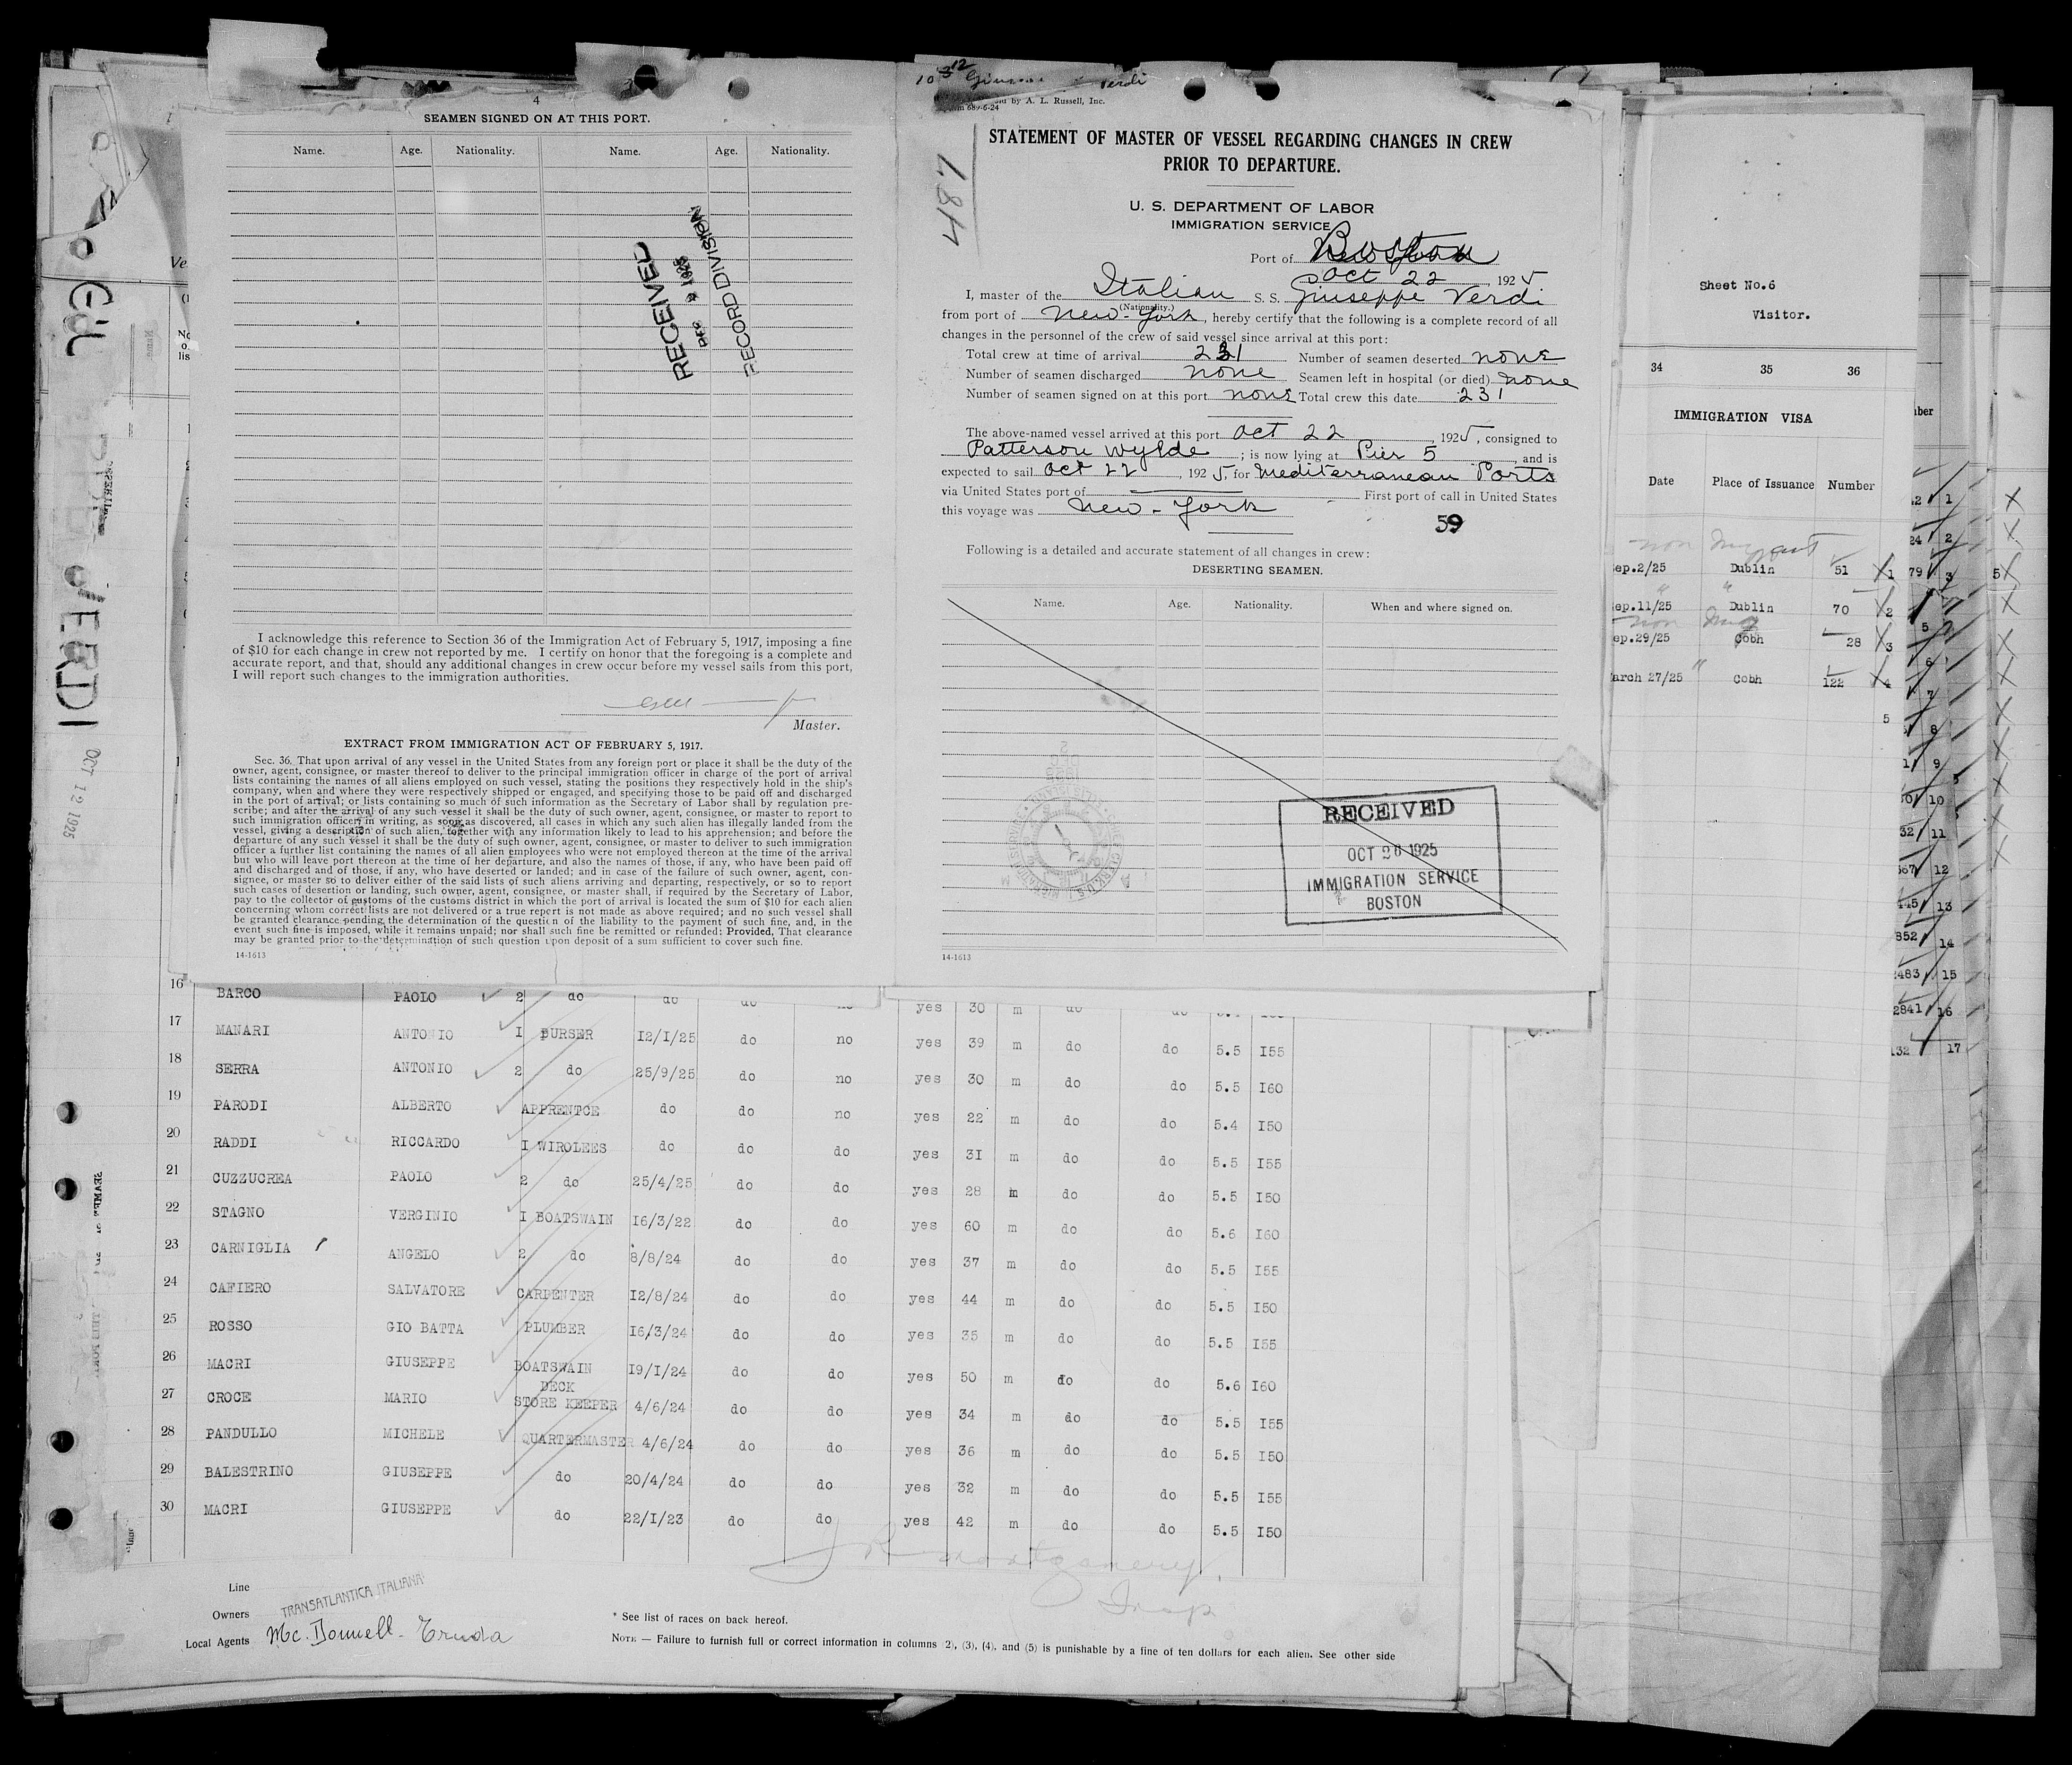 4
SEAMEN SIGNED ON AT THIS PORT.
Name. Age. Nationality. Name. Age. Nationality.
RECEIVED
DEC 1925
RECORD DIVISION
I acknowledge this reference to Section 36 of the Immigration Act of February 5, 1917, imposing a fine
of $10 for each change in crew not reported by me. I certify on honor that the foregoing is a complete and
accurate report, and that, should any additional changes in crew occur before my vessel sails from this port,
I will report such changes to the immigration authorities.
Master.
EXTRACT FROM IMMIGRATION ACT OF FEBRUARY 5, 1917.
Sec. 36. That upon arrival of any vessel in the United States from any foreign port or place it shall be the duty of the
owner, agent, consignee, or master thereof to deliver to the principal immigration officer in charge of the port of arrival
lists containing the names of all aliens employed on such vessel, stating the positions they respectively hold in the ship's
company, when and where they were respectively shipped or engaged, and specifying those to be paid off and discharged
in the port of arrival; or lists containing so much of such information as the Secretary of Labor shall by regulation pre-
scribe; and after the arrival of any such vessel it shall be the duty of such owner, agent, consignee, or master to report to
such immigration officer, in writing, as soon as discovered, all cases in which any such alien has illegally landed from the
vessel, giving a description of such alien, together with any information likely to lead to his apprehension; and before the
departure of any such vessel it shall be the duty of such owner, agent, consignee, or master to deliver to such immigration
officer a further list containing the names of all alien employees who were not employed thereon at the time of the arrival
but who will leave port thereon at the time of her departure, and also the names of those, if any, who have been paid off
and discharged and of those, if any, who have deserted or landed; and in case of the failure of such owner, agent, con-
signee, or master so to deliver either of the said lists of such aliens arriving and departing, respectively, or so to report
such cases of desertion or landing, such owner, agent, consignee, or master shall, if required by the Secretary of Labor,
pay to the collector of customs of the customs district in which the port of arrival is located the sum of $10 for each alien
concerning whom correct lists are not delivered or a true report is not made as above required; and no such vessel shall
be granted clearance pending the determination of the question of the liability to the payment of such fine, and, in the
event such fine is imposed, while it remains unpaid; nor shall such fine be remitted or refunded: Provided, That clearance
may be granted prior to the determination of such question upon deposit of a sum sufficient to cover such fine.
14-1613
Verdi
by A. L. Russell, Inc.
689-6-24
STATEMENT OF MASTER OF VESSEL REGARDING CHANGES IN CREW
PRIOR TO DEPARTURE.
U. S. DEPARTMENT OF LABOR
IMMIGRATION SERVICE
Port of Boston
Oct 22, 1925
I, master of the Italian S. S. Giuseppe Verdi
(Nationality.)
from port of New-York, hereby certify that the following is a complete record of all
changes in the personnel of the crew of said vessel since arrival at this port:
Total crew at time of arrival 231 Number of seamen deserted none
Number of seamen discharged none Seamen left in hospital (or died) none
Number of seamen signed on at this port none Total crew this date 231
The above-named vessel arrived at this port Oct 22, 1925, consigned to
Patterson Wylde; is now lying at Pier 5, and is
expected to sail Oct 22, 1925, for Mediterranean Ports
via United States port of First port of call in United States
this voyage was New-York
59
Following is a detailed and accurate statement of all changes in crew:
DESERTING SEAMEN.
Name. Age. Nationality. When and where signed on.
RECEIVED
OCT 26 1925
IMMIGRATION SERVICE
BOSTON
14-1613
VERDI
OCT 12 1925
Sheet No.6
Visitor.
34 35 36
IMMIGRATION VISA
Date Place of Issuance Number
ep.2/25 Dublin 51 1
ep.11/25 Dublin 70 2
ep.29/25 Cobh 28 3
arch 27/25 Cobh 122 4
5
16 BARCO PAOLO 2 do do do no yes 30 m do do
17 MANARI ANTONIO I PURSER I2/I/25 do no yes 39 m do do 5.5 I55
18 SERRA ANTONIO 2 do 25/9/25 do no yes 30 m do do 5.5 I60
19 PARODI ALBERTO APPRENTCE do do no yes 22 m do do 5.4 I50
20 RADDI RICCARDO I WIROLEES do do do yes 31 m do do 5.5 I55
21 CUZZUCREA PAOLO 2 do 25/4/25 do do yes 28 m do do 5.5 I50
22 STAGNO VERGINIO I BOATSWAIN I6/3/22 do do yes 60 m do do 5.6 I60
23 CARNIGLIA ANGELO 2 do 8/8/24 do do yes 37 m do do 5.5 I55
24 CAFIERO SALVATORE CARPENTER I2/8/24 do do yes 44 m do do 5.5 I50
25 ROSSO GIO BATTA PLUMBER I6/3/24 do do yes 35 m do do 5.5 I55
26 MACRI GIUSEPPE BOATSWAIN I9/I/24 do do yes 50 m do do 5.6 I60
27 CROCE MARIO DECK STORE KEEPER 4/6/24 do do yes 34 m do do 5.5 I55
28 PANDULLO MICHELE QUARTERMASTER 4/6/24 do do yes 36 m do do 5.5 I50
29 BALESTRINO GIUSEPPE do 20/4/24 do do yes 32 m do do 5.5 I55
30 MACRI GIUSEPPE do 22/I/23 do do yes 42 m do do 5.5 I50
Montgomery
Insp
Line TRANSATLANTICA ITALIANA
Owners
Local Agents Mc. Donnell - Truda
* See list of races on back hereof.
NOTE — Failure to furnish full or correct information in columns (2), (3), (4), and (5) is punishable by a fine of ten dollars for each alien. See other side